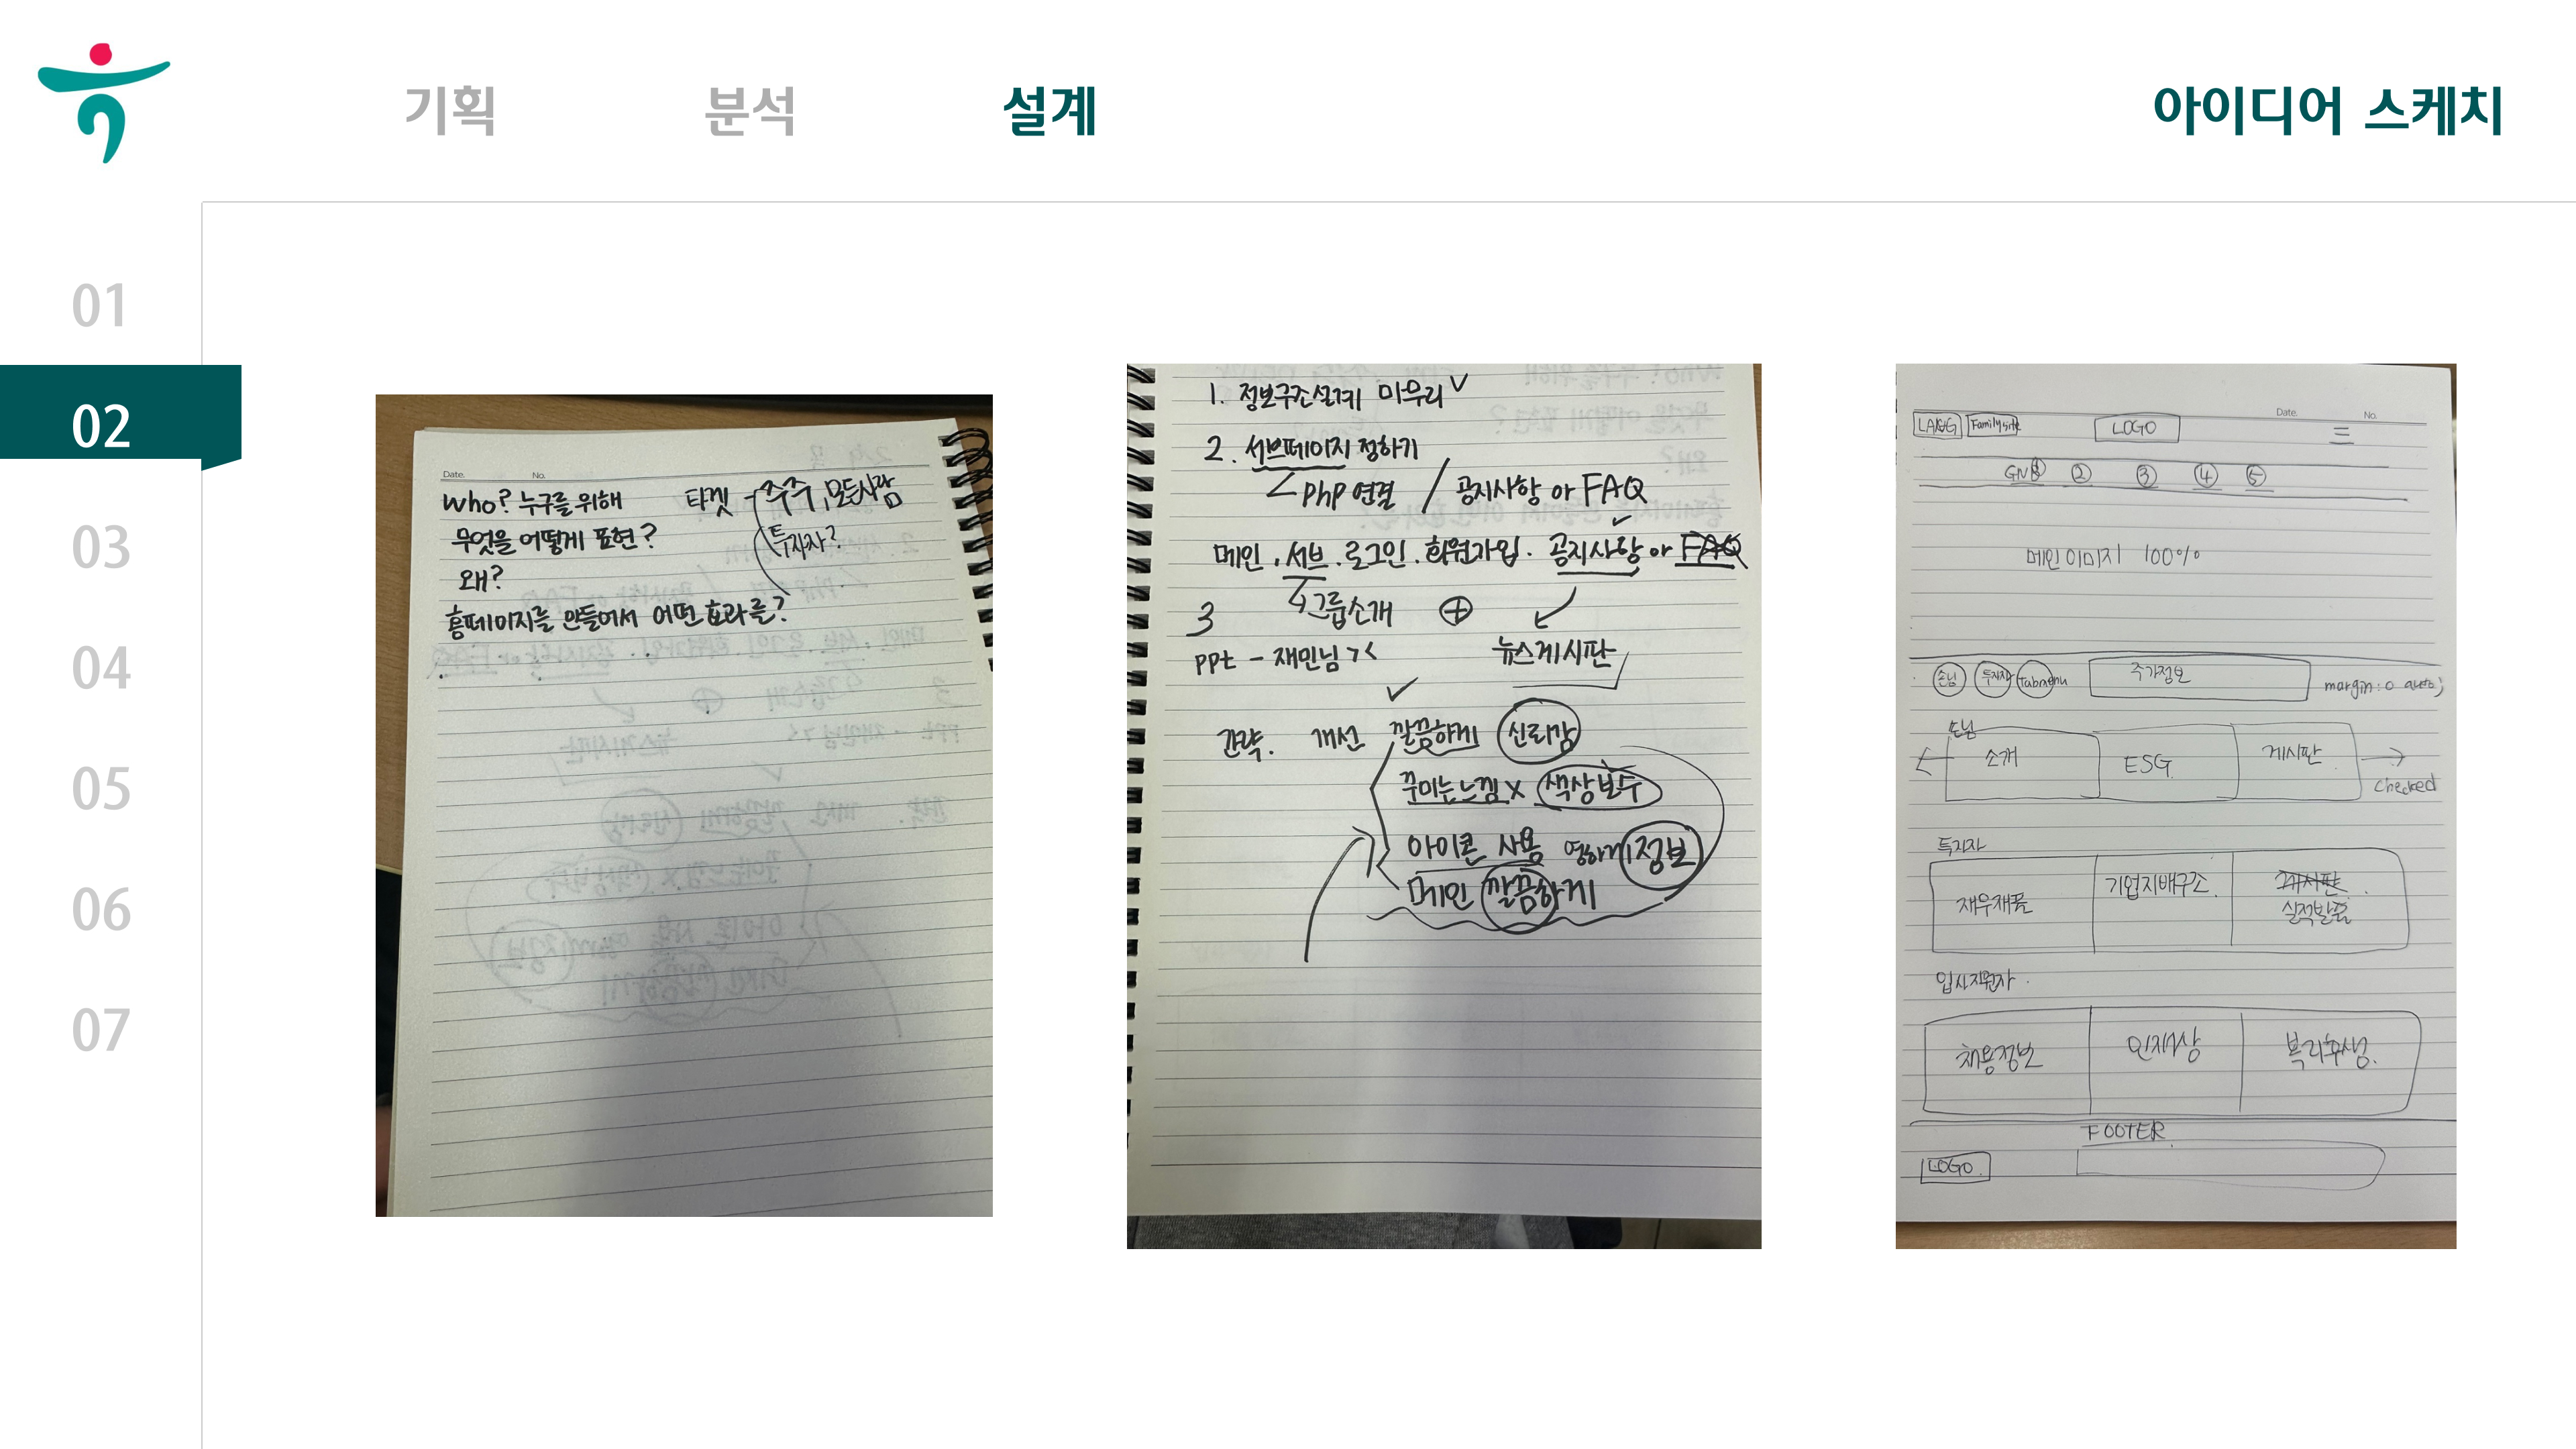 기획 분석 설계 아이디어 스케치
01
02
03
04
05
06
07
Date. No.
Who? 누구를 위해 타겟 - 주주, 모든사람
무엇을 어떻게 표현? 투자자?
왜?
홈페이지를 만들어서 어떤 효과를?
1. 정보구조설계 마무리 V
2. 서브페이지 정하기
php 연결 / 공지사항 or FAQ
메인 . 서브 . 로그인 . 회원가입 . 공지사항 or FAQ
3 그룹소개 +
ppt - 재민님 > < 뉴스게시판
간략. 개선 깔끔하게 신뢰감
꾸미는느낌 X 색상보수
아이콘 사용 정보
메인 깔끔하게
Date. No.
LANG Family site LOGO
GNB ② ③ ④ ⑤
메인이미지 100%
손님 투자자 Tabmenu 주가정보 margin: 0 auto;
손님
소개 ESG 게시판
checked
투자자
재무재표 기업지배구조. 게시판
실적발표
입사지원자
채용정보 인재상 복리후생.
FOOTER
LOGO